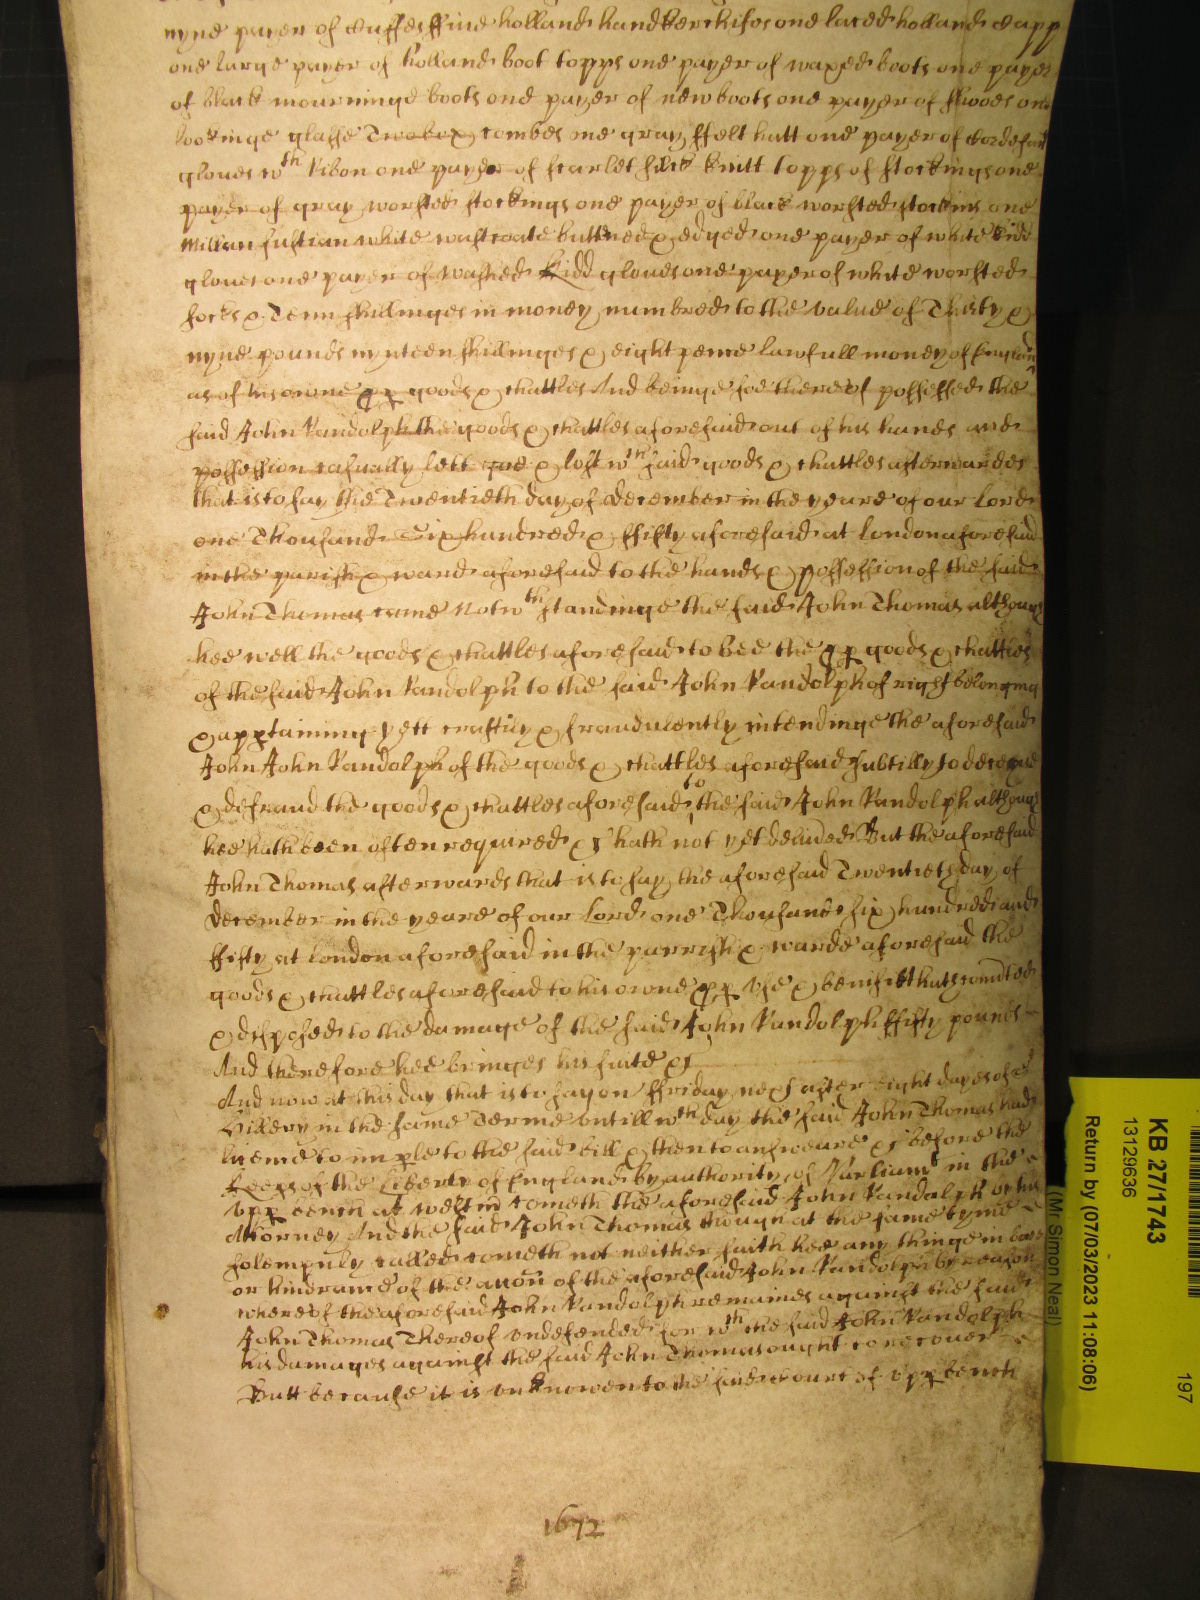 nyne payer of Cuffes ffine holland handkerchifes one laced holland Capp
one large payer of holland boot topps one payer of waxed boots one payer
of black mourninge boots one payer of new boots one payer of shooes one
lookinge glasse Two box combes one gray ffelt hatt one payer of
gloves wth Ribon one payer of scarlet silk knitt topps of stockings one
payer of gray worsted stockings one payer of black worsted stockins one
Millian fustian white wastcoate buttned & edged one payer of white Kidd
gloves one payer of washed Kidd gloves one payer of white worsted
socks & Tenn shillinges in money numbred to the value of Thirty &
nyne pounds nynteen shillinges & eight pence lawfull money of England
as of his owne pp goods & chattles And beinge soe thereof possessed the
said John Randolph the goods & chattles aforesaid out of his hands and
possession casually lett goe & lost wth said goods & chattles afterwardes
that is to say the Twentieth day of December in the yeare of our Lord
one Thousand Six hundred & ffifty aforesaid at London aforesaid
in the parish & ward aforesaid to the hands & possession of the said
John Thomas came Notwthstandinge the said John Thomas although
hee well the goods & chattles aforesaid to bee the pp goods & chattles
of the said John Randolph to the said John Randolph of right belonging
& apptaining yett craftily & fraudulently intendinge the aforesaid
John John Randolph of the goods & chattles aforesaid subtilly to deceive
& defraud the goods & chattles aforesaid to the said John Randolph although
hee hath been often required & hath not yet delivered But the aforesaid
John Thomas afterwards that is to say the aforesaid Twentieth day of
December in the yeare of our Lord one Thousand six hundred and
ffifty at London aforesaid in the parrish & warde aforesaid the
goods & chattles aforesaid to his owne pp use & benifitt hath convted
& disposed to the damage of the said John Randolph ffifty pounds
And therefore hee bringes his suite &
And now at this day that is to say on ffriday next after eight dayes of St
Hillery in the same Terme untill wth day the said John Thomas had
licence to imple to the said bill & then to answeare & before the
Keeps of the Liberty of England by authority of Parliamt in the
upp bench att Westm cometh the aforesaid John Randolph by his
Attorney And the said John Thomas though at the same tyme
solempnly called cometh not neither saith hee any thinge in barr
or hindrance of the accon of the aforesaid John Randolph by reason
whereof the aforesaid John Randolph remaines against the said
John Thomas Thereof undefended for wth the said John Randolph
his damages against the said John Thomas ought to recover
Butt because it is unknowen to the said Court of upp bench
1672
KB 27/1743
13129636
Return by (07/03/2023 11:08:06)
197
(Mr Simon Neal)